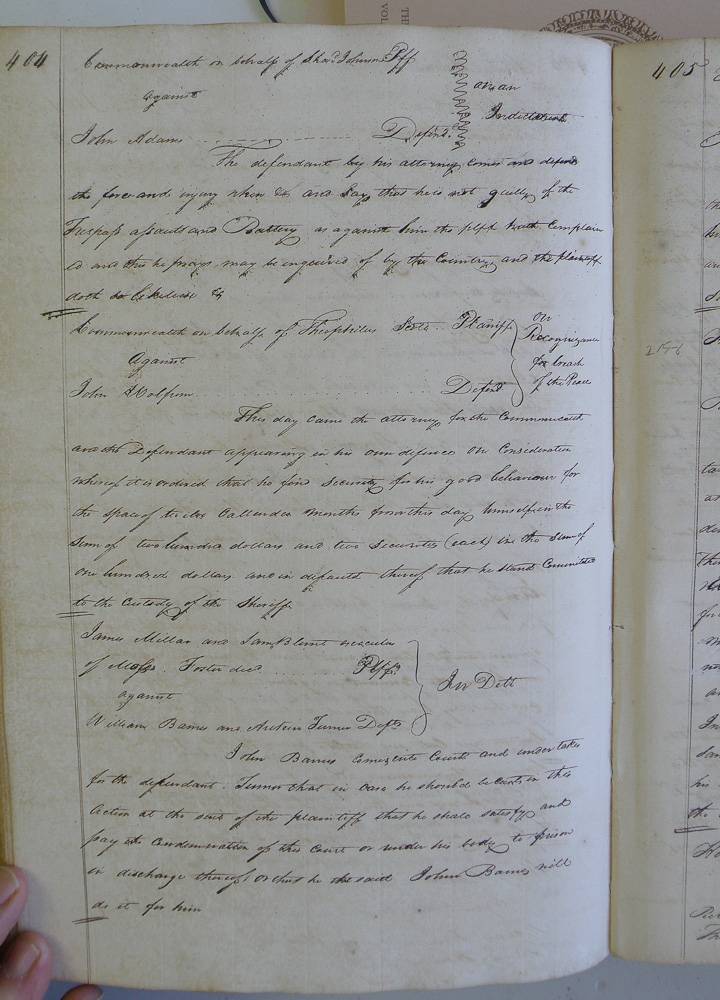 404
Commonwealth on behalf of Johnson Plff
against
on an
Indictment
John Adams Defend.t
The defendant by his attorney comes and defends
the force and injury when &c and says that he is not guilty of the
Trespass assault and Battery as against him the plff hath complain
ed and this he prays may be inquired of by the Country and the plaintiff
doth so likewise &c
Commonwealth on behalf of Theophilus Plantiff
on
Recognizance
for breach
of the Peace
Against
John Defend.t
This day came the attorney for the Commonwealth
and the Defendant appearing in his own defence On Consideration
whereof it is ordered that he find security for his good behaviour for
the space of twelve Callender months from this day himself in the
sum of two hundred dollars and two securities (each) in the sum of
one hundred dollars and in default thereof that he stand Committed
to the Custody of the Sheriff
James Millar and
of Foster dec.d Plffs
In Debt
against
William Barnes and Turner Defts
John Barnes comes into Court and undertakes
for the defendant Turner that in case he should be cast in this
action at the suit of the plaintiff that he shall satisfy and
pay the condemnation of the Court or render his body to prison
in discharge thereof or that he the said John Barnes will
do it for him
405